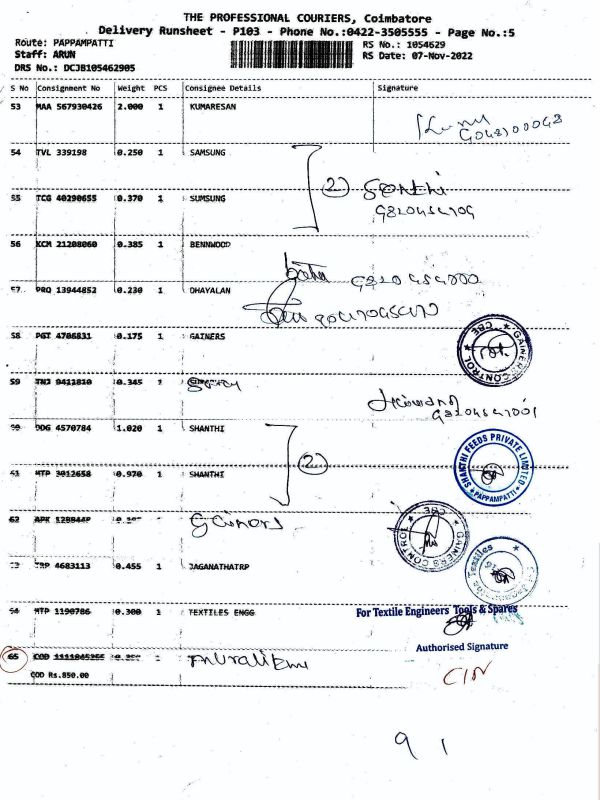 THE PROFESSIONAL COURIERS, Coimbatore
Delivery Runsheet - P103 - Phone No.:0422-3505555 - Page No.:5
Route: PAPPAMPATTI
RS No.: 1054629
Staff: ARUN
RS Date: 07-Nov-2022
DRS No.: DCJB105462905
S No Consignment No Weight PCS Consignee Details Signature
53 MAA 567930426 2.000 1 KUMARESAN
54 TVL 339198 0.250 1 SAMSUNG
2
55 TCG 40290655 0.370 1 SUMSUNG
56 KCM 21208060 0.385 1 BENNWOOD
57 PRQ 13944852 0.230 1 DHAYALAN
58 PGT 4706831 0.175 1 GAINERS
GAINERS CONTROL ★ CBE ★
59 TNJ 9411810 0.345
60 DDG 4570784 1.020 1 SHANTHI
2
SHANTHI FEEDS PRIVATE LIMITED
★ PAPPAMPATTI ★
61 MTP 3012658 0.970 1 SHANTHI
62 APK
GAINERS CONTROL ★ CBE ★
Textiles
TRP 4683113 0.455 1 JAGANATHATRP
64 MTP 1190786 0.300 1 TEXTILES ENGG
For Textile Engineers Tools & Spares
Authorised Signature
65 COD
COD Rs.850.00
91